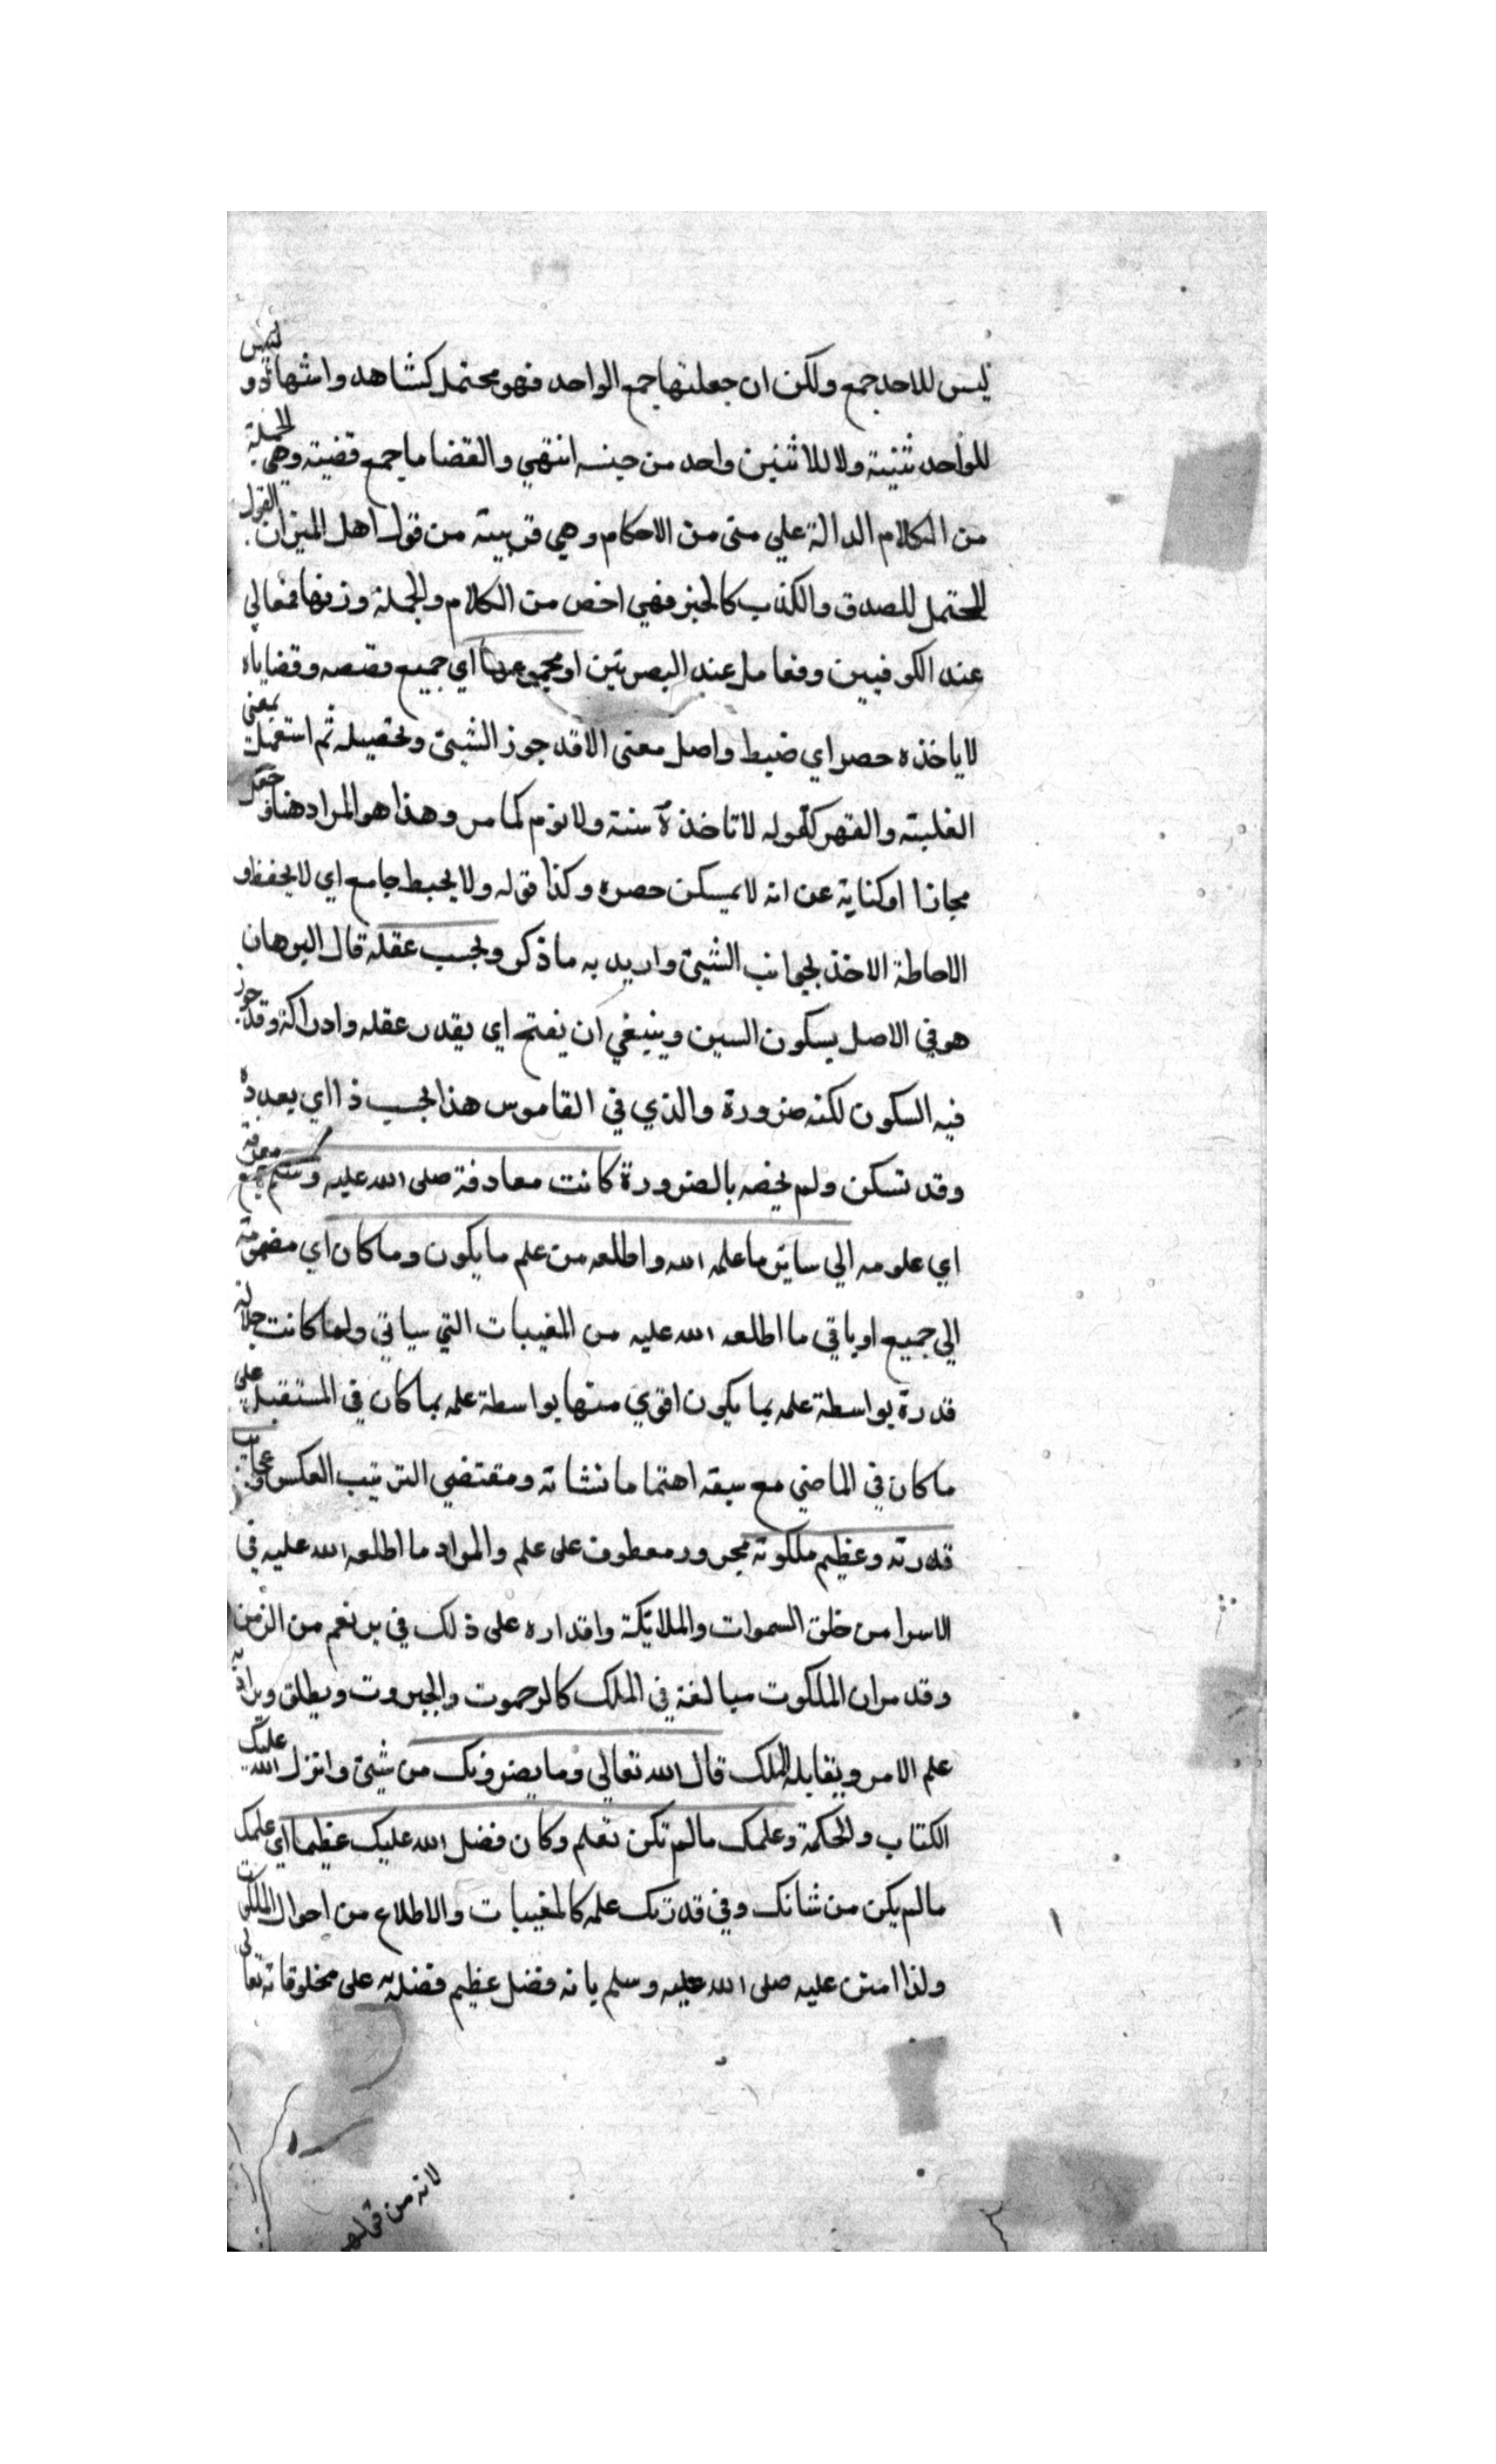 ليس للاحد جمع ولكن ان جعلتها جمع الواحد فهو محتمل كشاهد واشهاد و ليس
للواحد تثنية ولا للاثنين واحد من جنسه انتهي والقضايا جمع قضية وهي الجملة
من الكلام الدالة علي شي من الاحكام وهي قريبة من قول اهل الميزان القول
المحتمل للصدق والكذب كالخبر فهي اخص من الكلام والجملة وزنها فعالي
عند الكوفيين وفعايل عند البصريين او مجموعها اي جميع قصصه وقضاياه
لا ياخذه حصر اي ضبط واصل معني الاخذ حوز الشيئ وتحصيله ثم استعمل بمعني
الغلبة والقهر كقوله لا تاخذه سنة ولا نوم كما مر وهذا هو المراد هنا و جعل
مجازا او كناية عن انه لا يمكن حصره وكذا قوله ولا يحيط جامع اي لا يحفظ و
الاحاطة الاخذ بجوانب الشيئ واريد به ما ذكر وبحسب عقله قال البرهان
هو في الاصل بسكون السين وينبغي ان يفتح اي بقدر عقله وادراكه وقد جوز
فيه السكون لكنه ضرورة والذي في القاموس هذا بحسب ذا اي بعدده
وقد تسكن ولم يخصه بالضرورة كانت معارفه صلى الله عليه وسلم جمع معرفة
اي علومه الي ساير ما علمه الله واطلعه من علم ما يكون وما كان اي مضمومة
الي جميع او باقي ما اطلعه الله عليه من المغيبات التي سياتي ولما كانت جلالة
قدرة بواسطة علمه بما يكون اقوي منها بواسطة علمه بما كان في المستقبل علي
ما كان في الماضي مع سبقه اهتماما بشانه ومقتضي الترتيب العكس وعجائب
قدرته وعظيم ملكوته مجرور معطوف على علم والمراد ما اطلعه الله عليه في
الاسرا من خلق السموات والملائكة واقداره على ذلك في برهم من الزمن
وقد مر ان الملكوت مبالغة في الملك كالرحموت والجبروت ويطلق ويراد به
علم الامر ويقابله الملك قال الله تعالي وما يضرونك من شيئ وانزل الله عليك
الكتاب والحكمة وعلمك مالم تكن تعلم وكان فضل الله عليك عظيما اي علمك
مالم يكن من شانك وفي قدرتك علمه كالمغيبات والاطلاع من احوال الملكوت
ولذا امتن عليه صلى الله عليه وسلم بانه فضل عظيم فضله به على مخلوقاته تعالي
لانه من